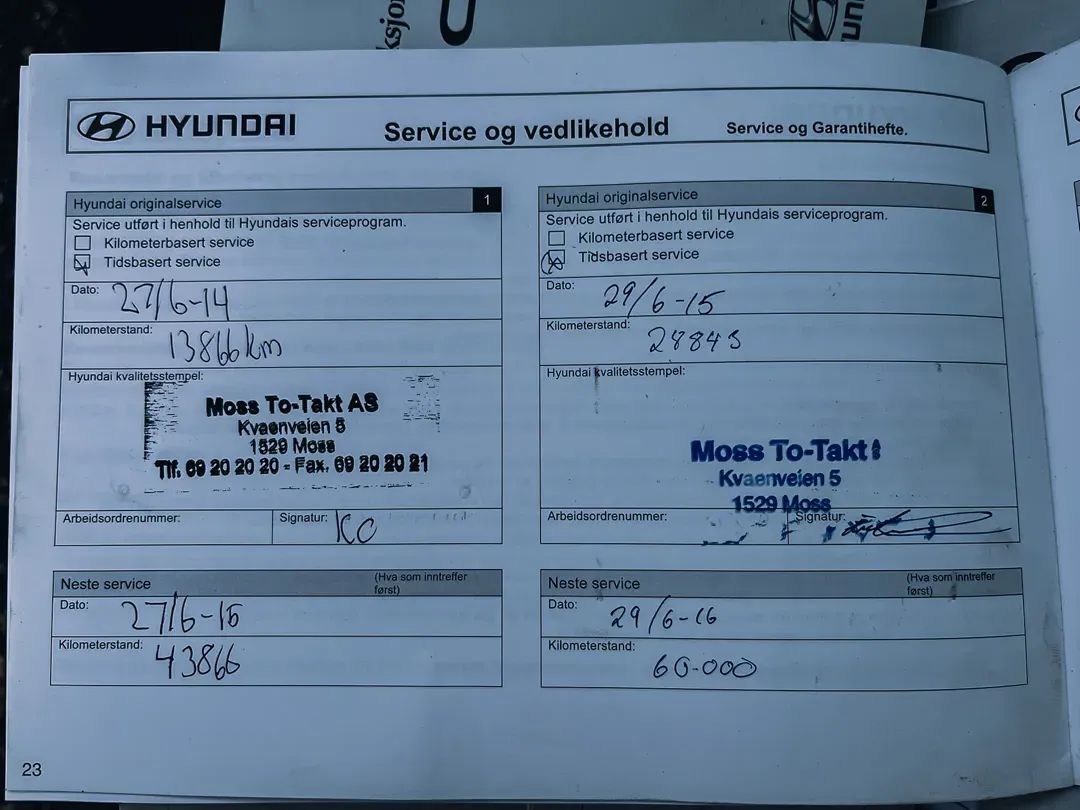 HYUNDAI
Service og vedlikehold
Service og Garantihefte.
Hyundai originalservice 1
Service utført i henhold til Hyundais serviceprogram.
Kilometerbasert service
Tidsbasert service
Dato: 27/6-14
Kilometerstand: 13866 km
Hyundai kvalitetsstempel:
Moss To-Takt AS
Kvaenveien 5
1529 Moss
Tlf. 69 20 20 20 - Fax. 69 20 20 21
Arbeidsordrenummer:
Signatur: KO
Neste service (Hva som inntreffer
først)
Dato: 27/6-15
Kilometerstand: 43866
Hyundai originalservice 2
Service utført i henhold til Hyundais serviceprogram.
Kilometerbasert service
Tidsbasert service
Dato: 29/6-15
Kilometerstand: 28845
Hyundai kvalitetsstempel:
Moss To-Takt
Kvaenveien 5
1529 Moss
Arbeidsordrenummer:
Signatur:
Neste service (Hva som inntreffer
først)
Dato: 29/6-16
Kilometerstand: 60.000
23